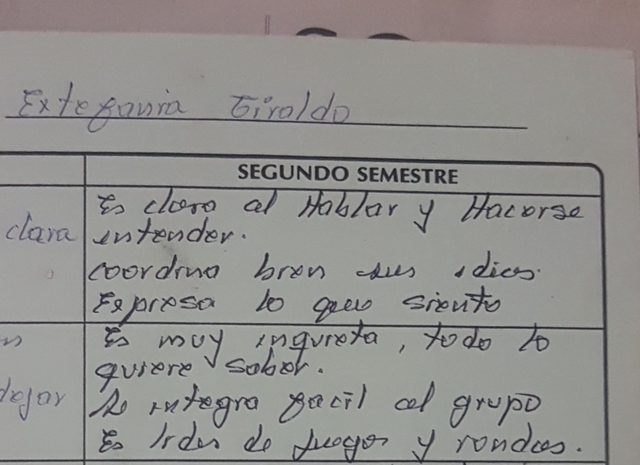 Extefania Giraldo
SEGUNDO SEMESTRE
Es clara al Hablar y Hacerse
clara entender.
coordina bien sus ideas.
Expresa lo que siente
Es muy inquieta, todo lo
quiere saber.
dejar Se integra facil al grupo
Es lider de juegos y rondas.